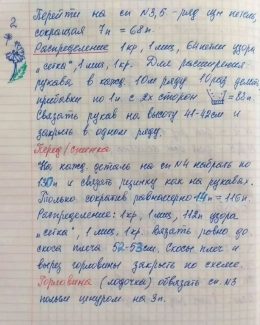 2
Перейти на сп N3,5 - ряд изн петель,
сокращая 7п = 68п.
Распределение: 1кр, 1 изн, 64петли узора
"сетка", 1 изн, 1кр. Для расширения
рукава в кажд. 10м ряду 10раз делать
прибавки по 1п с 2х сторон = 88п.
Связать рукав на высоту 41-42см и
закрыть в одном ряду.
Перед/спинка
На кажд. деталь на сп N4 набрать по
130п и связать резинку как на рукавах.
Только сократив равномерно 14п = 116п.
Распределение: 1кр, 1 изн, 112п узора
"сетка", 1 изн, 1кр. Вязать ровно до
скоса плеча 52-53см. Скосы плеч и
вырез горловины закрыть по схеме.
Горловина (лодочка) обвязать сп N3
полым шнуром на 3п.